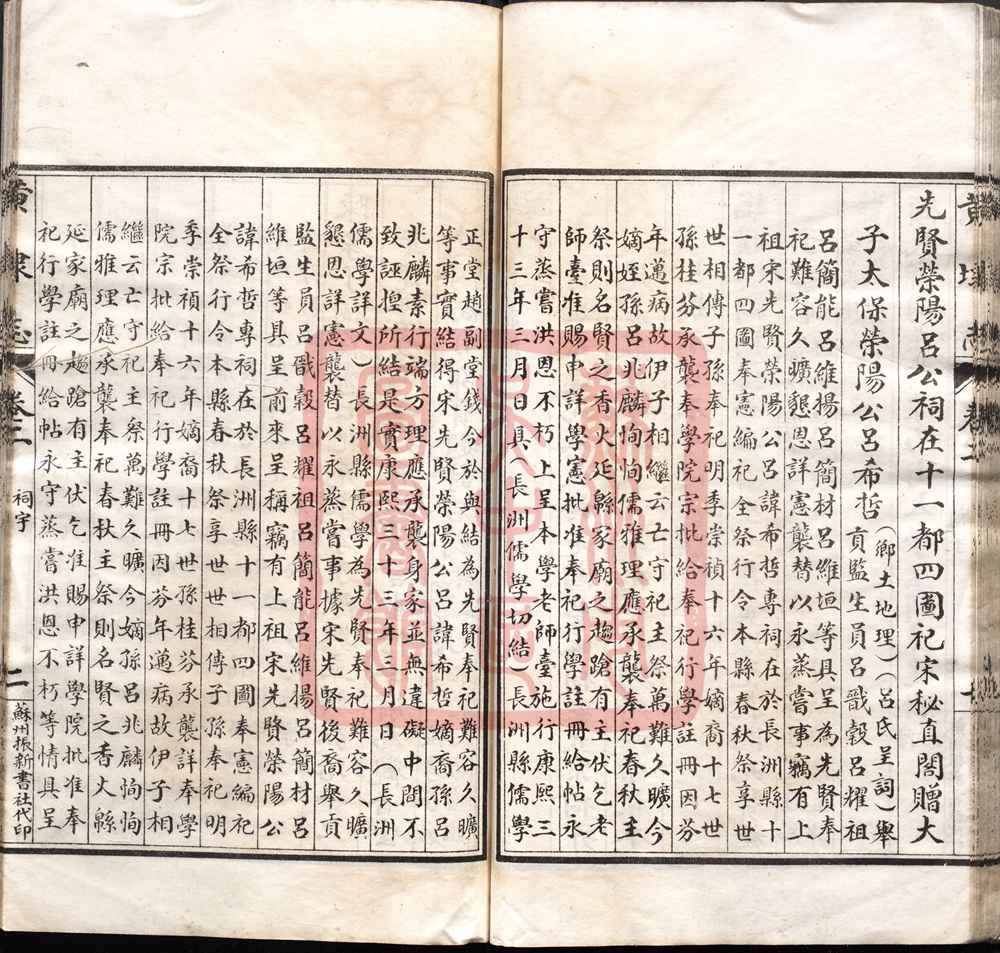 先賢榮陽呂公祠在十一都四圖祀宋秘直閣贈大
子太保榮陽公呂希哲(鄉土地理)(呂氏呈詞)舉
貢監生員呂戬穀呂耀祖
呂簡能呂維揚呂簡材呂維垣等具呈為先賢奉
祀難容久曠懇恩詳憲襲替以永蒸嘗事竊有上
祖宋先賢榮陽公呂諱希哲專祠在於長洲縣十
一都四圖奉憲編祀全祭行令本縣春秋祭享世
世相傳子孫奉祀明季崇禎十六年嫡裔十七世
孫桂芬承襲奉學院宗批給奉祀行學註冊因芬
年邁病故伊子相繼云亡守祀主祭萬難久曠今
嫡姪孫呂兆麟恂恂儒雅理應承襲奉祀春秋主
祭則名賢之香火延緜家廟之趨蹌有主伏乞老
師臺准賜申詳學憲批准奉祀行學註冊給帖永
守蒸嘗洪恩不朽上呈本學老師臺施行康熙三
十三年三月日具(長洲儒學切結)長洲縣儒學
正堂趙副堂錢今於與結為先賢奉祀難容久曠
等事實結得宋先賢榮陽公呂諱希哲嫡裔孫呂
兆麟素行端方理應承襲身家並無違礙中間不
致誣揑所結是實康熙三十三年三月日(長洲
儒學詳文)長洲縣儒學為先賢奉祀難容久曠
懇恩詳憲襲替以永蒸嘗事據宋先賢後裔舉貢
監生員呂戬穀呂耀祖呂簡能呂維揚呂簡材呂
維垣等具呈前來呈稱竊有上祖宋先賢榮陽公
諱希哲專祠在於長洲縣十一都四圖奉憲編祀
全祭行令本縣春秋祭享世世相傳子孫奉祀明
季崇禎十六年嫡裔十七世孫桂芬承襲詳奉學
院宗批給奉祀行學註冊因芬年邁病故伊子相
繼云亡守祀主祭萬難久曠今嫡孫呂兆麟恂恂
儒雅理應承襲奉祀春秋主祭則名賢之香火緜
延家廟之趨蹌有主伏乞准賜申詳學院批准奉
祀行學註冊給帖永守蒸嘗洪恩不朽等情具呈
卷三
祠宇
二
蘇州振新書社代印